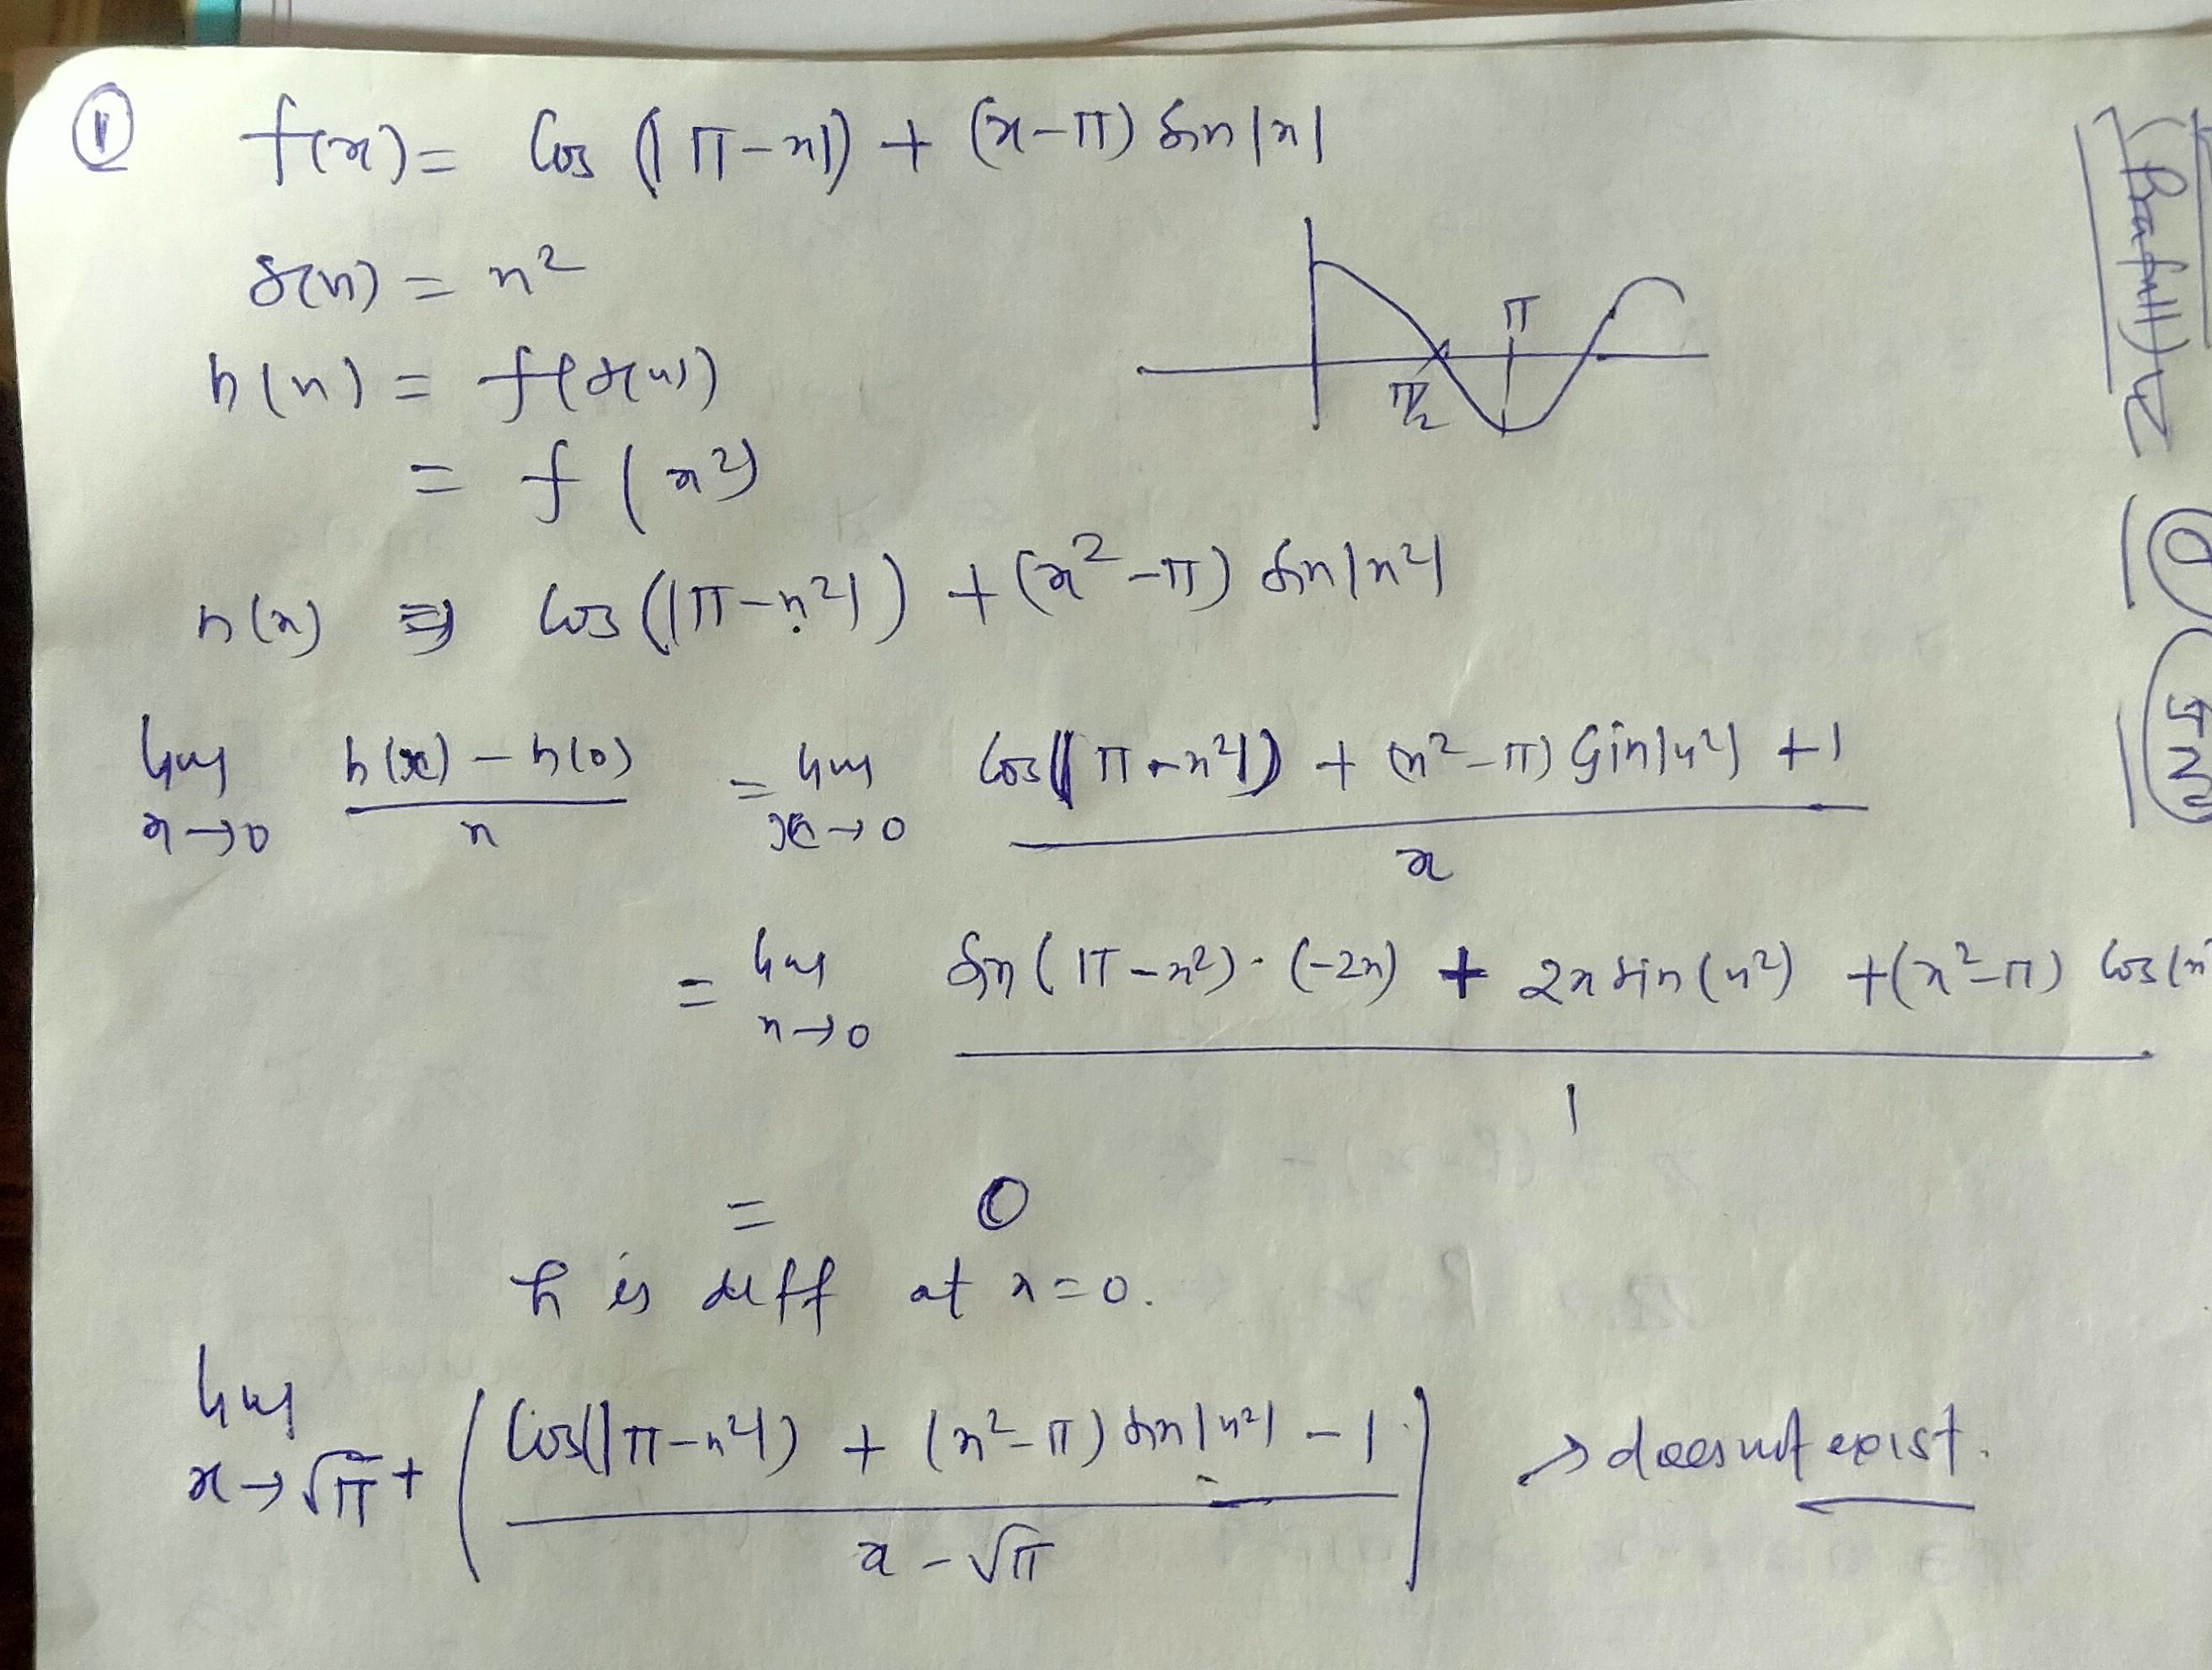 ① f(x) = Cos (|π-x|) + (x-π) Sin|x|
g(x) = x²
π
h(x) = f(g(x))
π/2
= f(x²)
h(x) ⇒ Cos(|π-x²|) + (x²-π) Sin|x²|
lim x→0 h(x) - h(0) / x = lim x→0 Cos(|π-x²|) + (x²-π) Sin|x²| + 1 / x
= lim x→0 Sin(π-x²)·(-2x) + 2x sin(x²) + (x²-π) Cos(x²
1
= 0
h is diff at x=0.
lim x→√π+ ( Cos(|π-x²|) + (x²-π) Sin|x²| - 1 / x-√π ) → does not exist.
(Prafull)